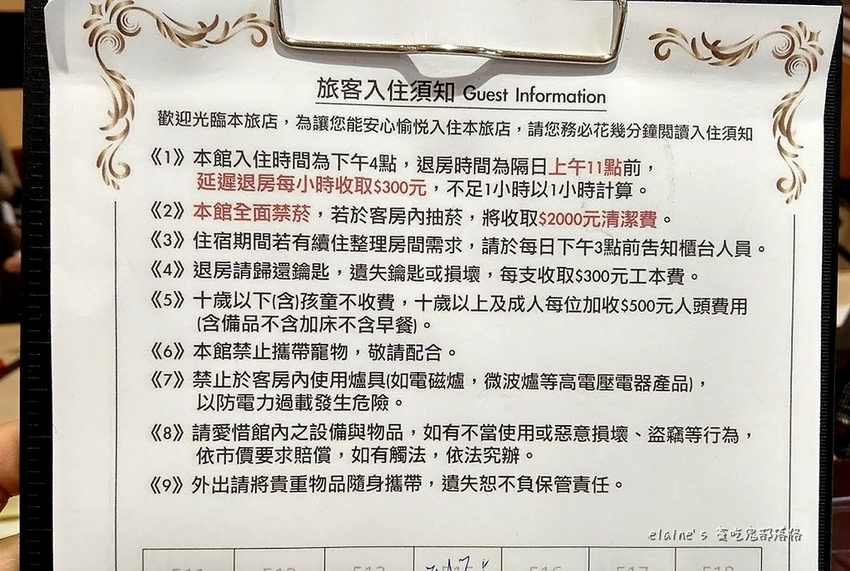 旅客入住須知 Guest Information
歡迎光臨本旅店，為讓您能安心愉悅入住本旅店，請您務必花幾分鐘閱讀入住須知
《1》本館入住時間為下午4點，退房時間為隔日上午11點前，
延遲退房每小時收取$300元，不足1小時以1小時計算。
《2》本館全面禁菸，若於客房內抽菸，將收取$2000元清潔費。
《3》住宿期間若有續住整理房間需求，請於每日下午3點前告知櫃台人員。
《4》退房請歸還鑰匙，遺失鑰匙或損壞，每支收取$300元工本費。
《5》十歲以下(含)孩童不收費，十歲以上及成人每位加收$500元人頭費用
(含備品不含加床不含早餐)。
《6》本館禁止攜帶寵物，敬請配合。
《7》禁止於客房內使用爐具(如電磁爐，微波爐等高電壓電器產品)，
以防電力過載發生危險。
《8》請愛惜館內之設備與物品，如有不當使用或惡意損壞、盜竊等行為，
依市價要求賠償，如有觸法，依法究辦。
《9》外出請將貴重物品隨身攜帶，遺失恕不負保管責任。
elaine's 貪吃鬼部落格
511 512 513 515 516 517 518